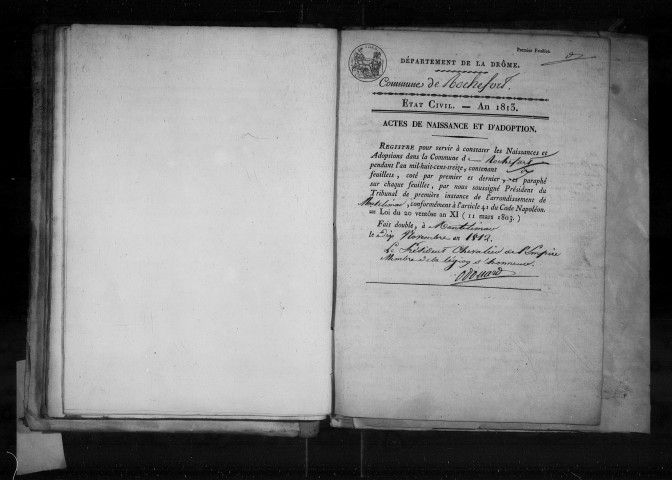 Premier Feuillet.
DÉPARTEMENT DE LA DRÔME.
Commune de Rochefort.
ETAT CIVIL. — AN 1813.
ACTES DE NAISSANCE ET D'ADOPTION.
REGISTRE pour servir à constater les Naissances et
Adoptions dans la Commune de Rochefort
pendant l'an mil-huit-cens-treize, contenant
feuillets, coté par premier et dernier, et paraphé
sur chaque feuillet, par nous soussigné Président du
Tribunal de première instance de l'arrondissement de
Montélimar, conformément à l'article 41 du Code Napoléon.
= Loi du 20 ventôse an XI (11 mars 1803.)
Fait double, à Montélimar
le dix Novembre an 1812.
Le Président Chevalier de l'Empire
Membre de la légion d'honneur